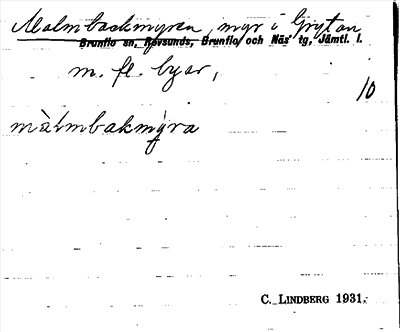 Malmbackmyren, myr i Grytan
Brunflo sn, Revsunds, Brunflo och Näs tg, Jämtl. l.
m. fl. byar,
10
màlmbakmỳra
C. LINDBERG 1931.